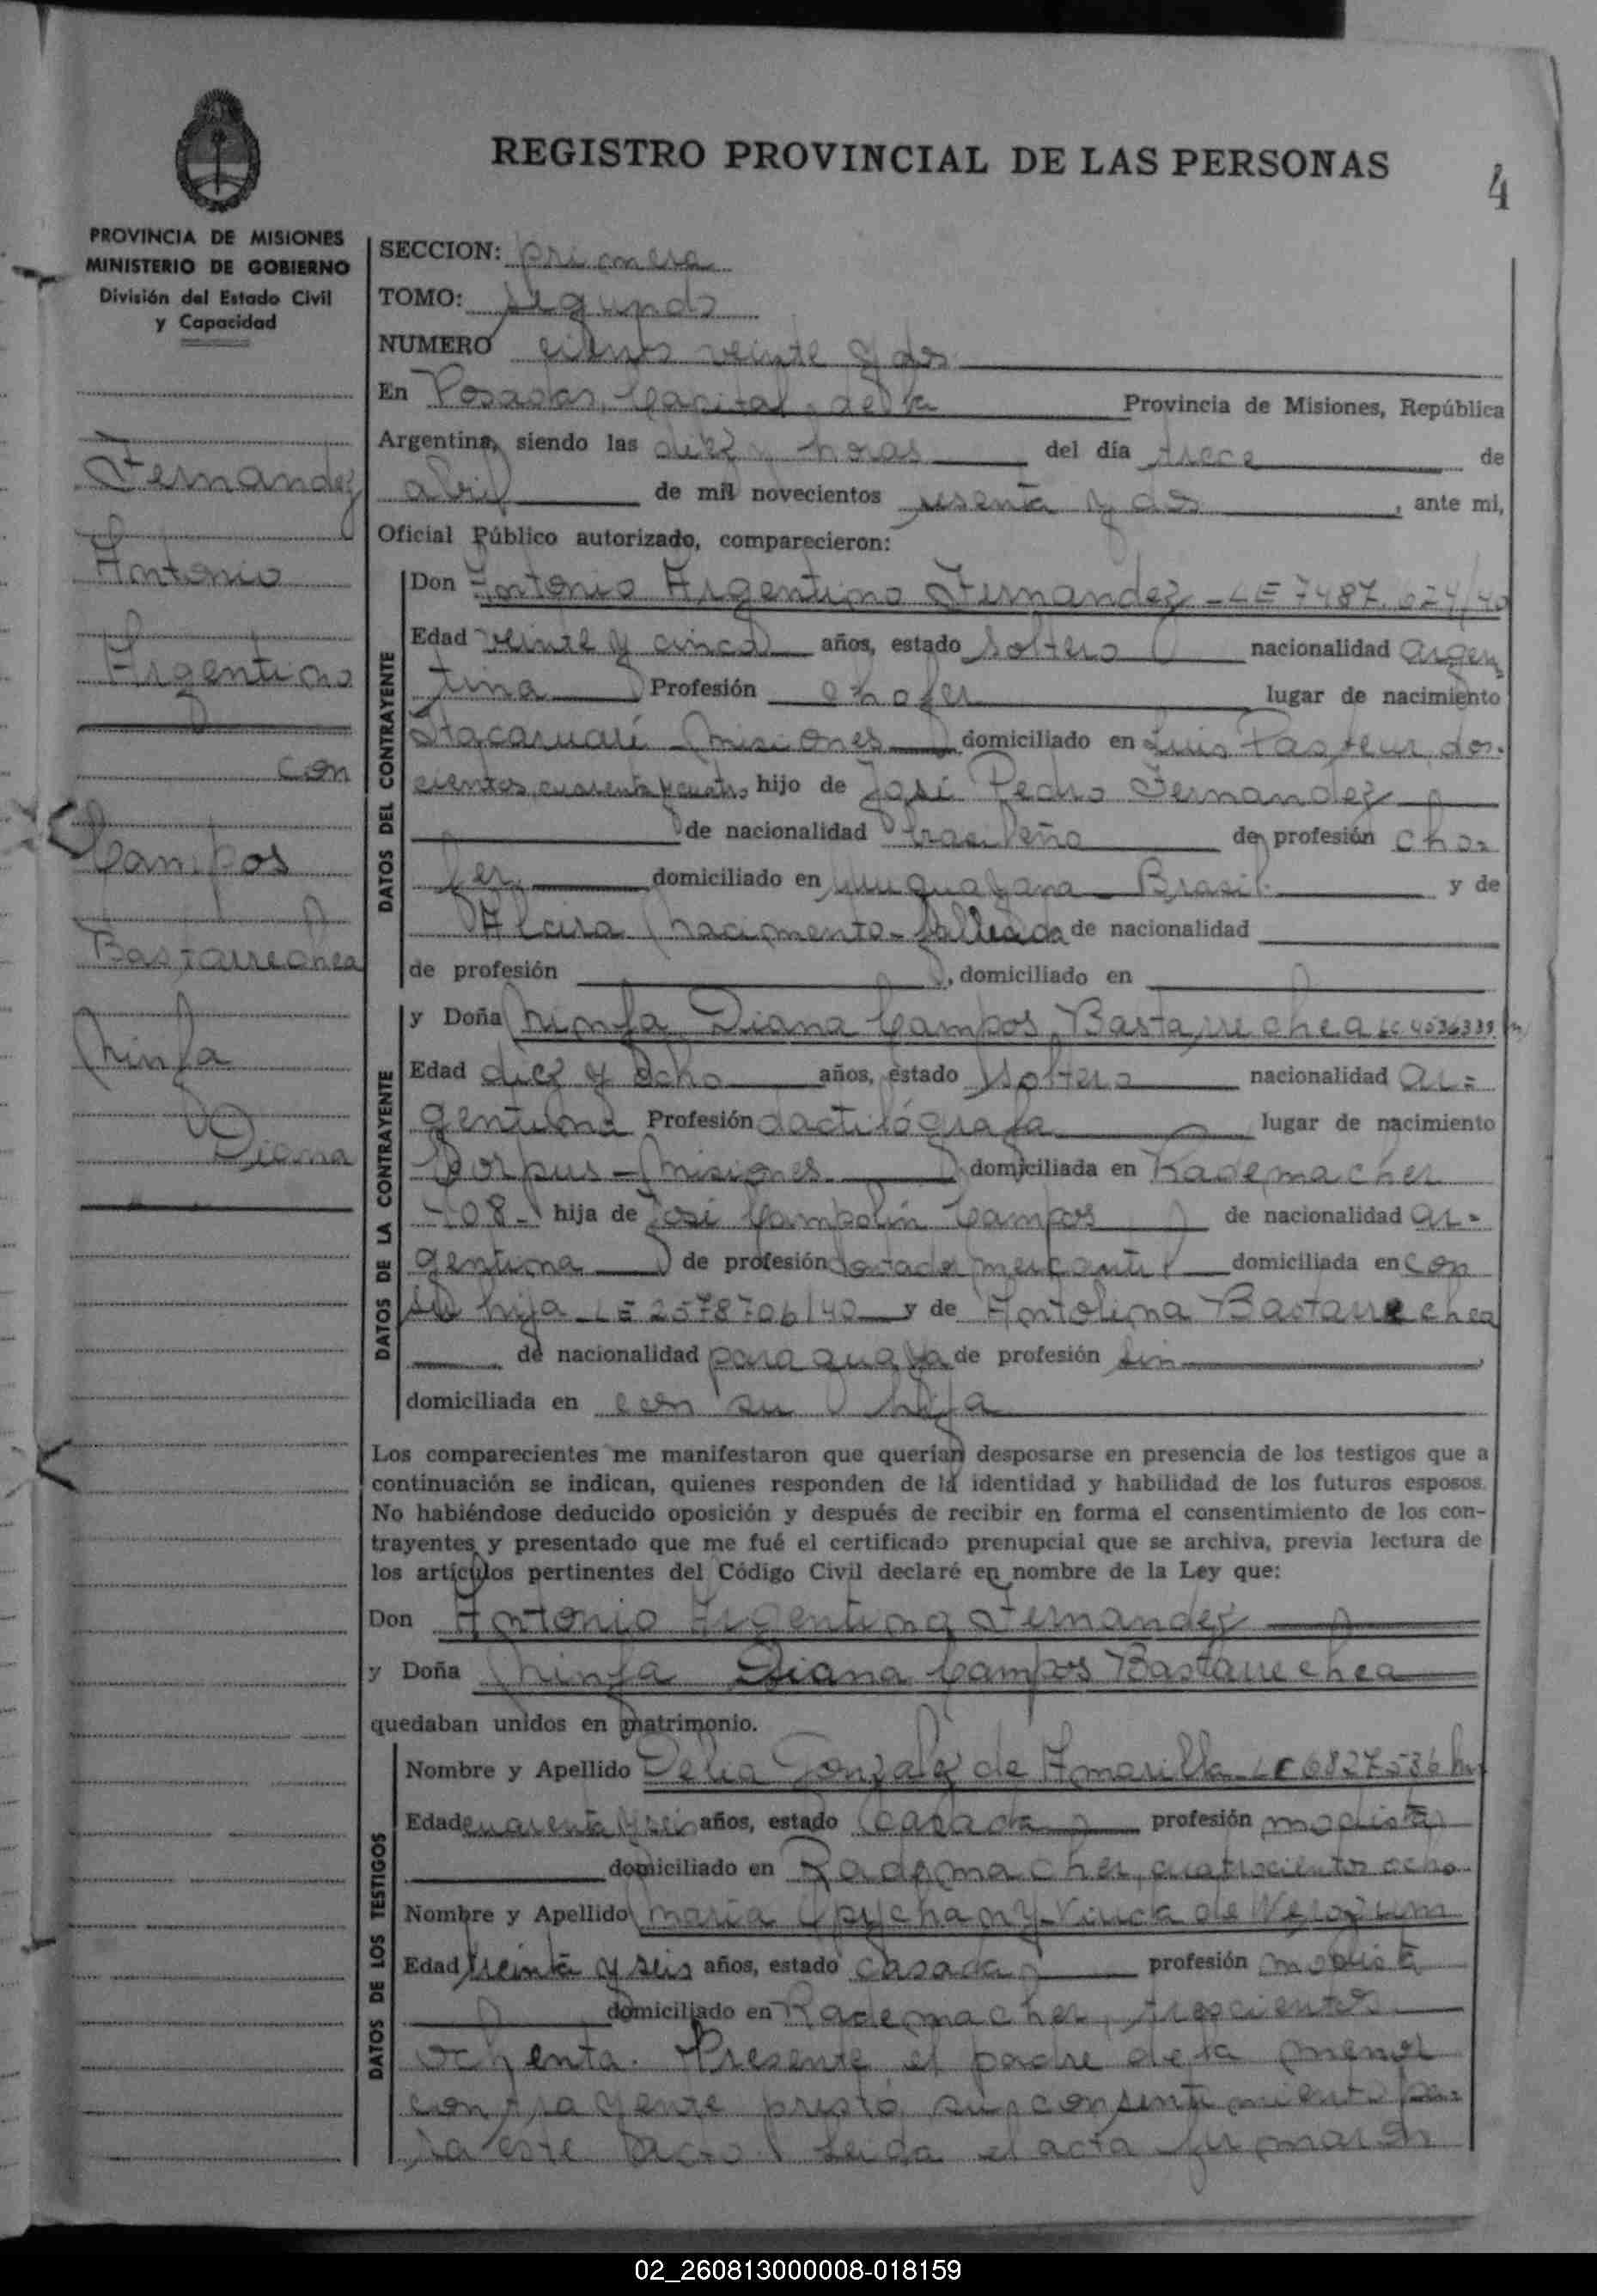 REGISTRO PROVINCIAL DE LAS PERSONAS
4
PROVINCIA DE MISIONES
MINISTERIO DE GOBIERNO
División del Estado Civil
y Capacidad
Fernandez
Antonio
Argentino
con
Campos
Bastarrechea
Ninfa
Diana
SECCION: primera
TOMO: segundo
NUMERO ciento veinte y dos
En Posadas, Capital de la Provincia de Misiones, República
Argentina, siendo las diez horas del día trece de
abril de mil novecientos sesenta y dos, ante mi,
Oficial Público autorizado, comparecieron:
DATOS DEL CONTRAYENTE
Don Antonio Argentino Fernandez - LE 7487.624/40
Edad veinte y cinco años, estado soltero nacionalidad argen
tina Profesión chofer lugar de nacimiento
Itacaruaré - Misiones domiciliado en Luis Pasteur dos-
cientos cuarenta y cuatro hijo de José Pedro Fernandez
de nacionalidad brasileña de profesión cho-
fer domiciliado en Uruguayana - Brasil y de
Alcira Nacimento - fallecida de nacionalidad
de profesión , domiciliado en
DATOS DE LA CONTRAYENTE
y Doña Ninfa Diana Campos Bastarrechea LC 4536339
Edad diez y ocho años, estado soltera nacionalidad ar-
gentina Profesión dactilógrafa lugar de nacimiento
Corpus - Misiones domiciliada en Rademacher
408 - hija de José Campolín Campos de nacionalidad ar-
gentina de profesión mercantil domiciliada en con
su hija LE 2578706/40 y de Antolina Bastarrechea
de nacionalidad paraguaya de profesión sin ,
domiciliada en con su hija
Los comparecientes me manifestaron que querían desposarse en presencia de los testigos que a
continuación se indican, quienes responden de la identidad y habilidad de los futuros esposos.
No habiéndose deducido oposición y después de recibir en forma el consentimiento de los con-
trayentes y presentado que me fué el certificado prenupcial que se archiva, previa lectura de
los artículos pertinentes del Código Civil declaré en nombre de la Ley que:
Don Antonio Argentino Fernandez
y Doña Ninfa Diana Campos Bastarrechea
quedaban unidos en matrimonio.
DATOS DE LOS TESTIGOS
Nombre y Apellido Delia Gonzalez de Amarilla LC 6827536
Edad cuarenta y seis años, estado casada profesión modista
domiciliado en Rademacher, cuatrocientos ocho
Nombre y Apellido María viuda de
Edad treinta y seis años, estado casada profesión modista
domiciliado en Rademacher, trescientos
ochenta. Presente el padre de la menor
contrayente prestó su consentimiento pa-
ra este acto. Leida el acta firmaron
02_260813000008-018159